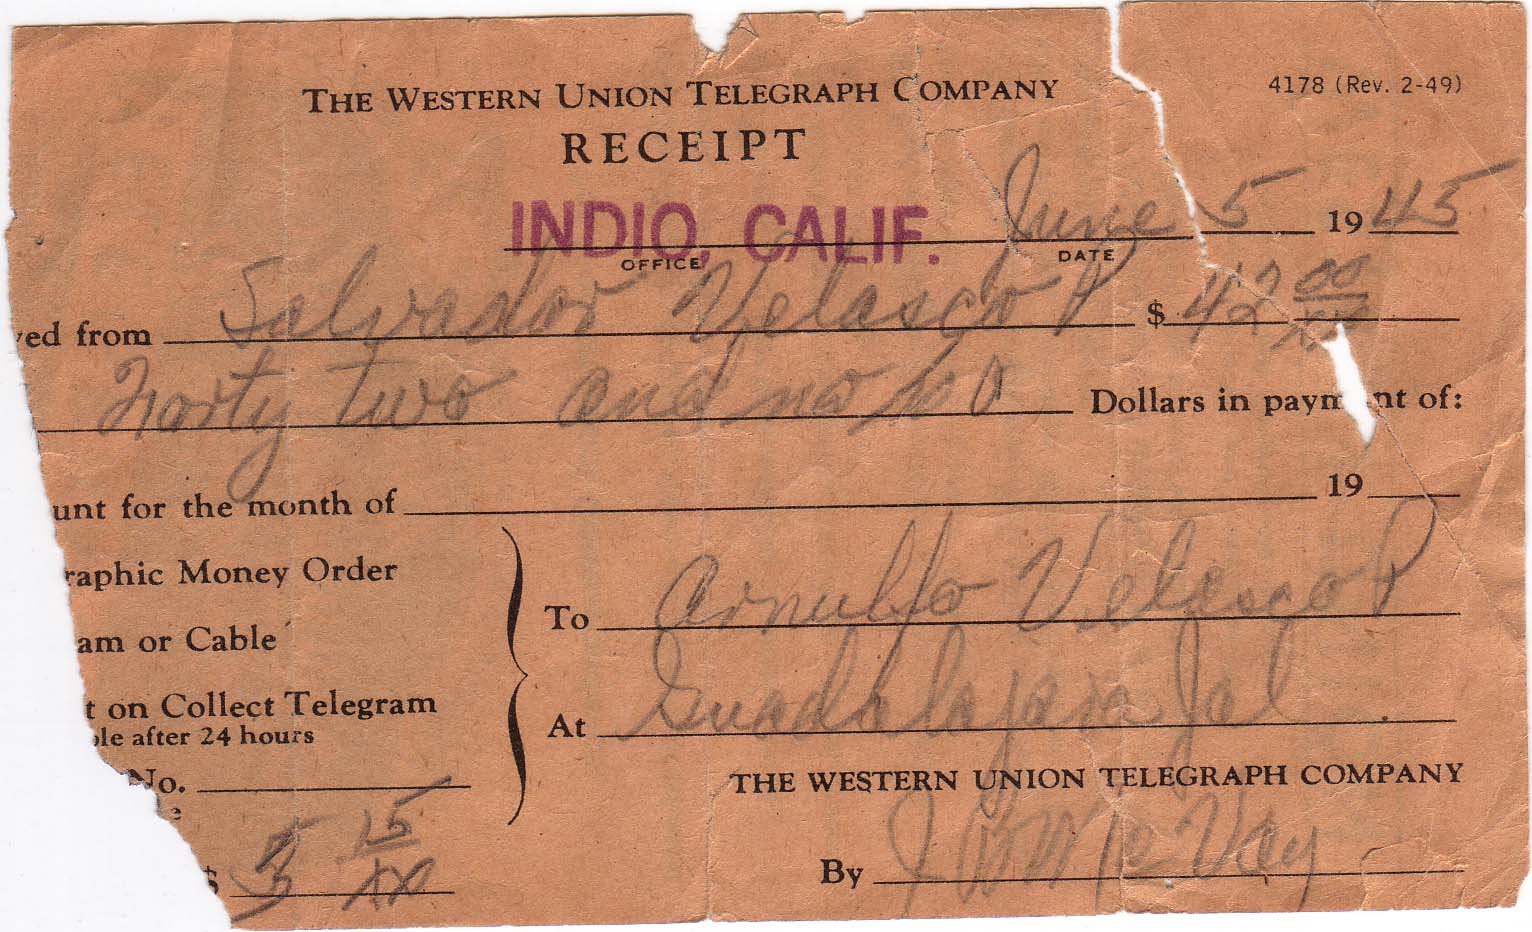 THE WESTERN UNION TELEGRAPH COMPANY 4178 (Rev. 2-49)
RECEIPT
INDIO, CALIF. June 5 1945
OFFICE DATE
ved from Salvador Velasco P $ 42 00/xx
Forty two and no Dollars in paym nt of:
unt for the month of 19
raphic Money Order
To Arnulfo Velasco P
am or Cable
t on Collect Telegram
At Guadalajara Jal
ble after 24 hours
No.
THE WESTERN UNION TELEGRAPH COMPANY
e
$ 3 15/xx
By